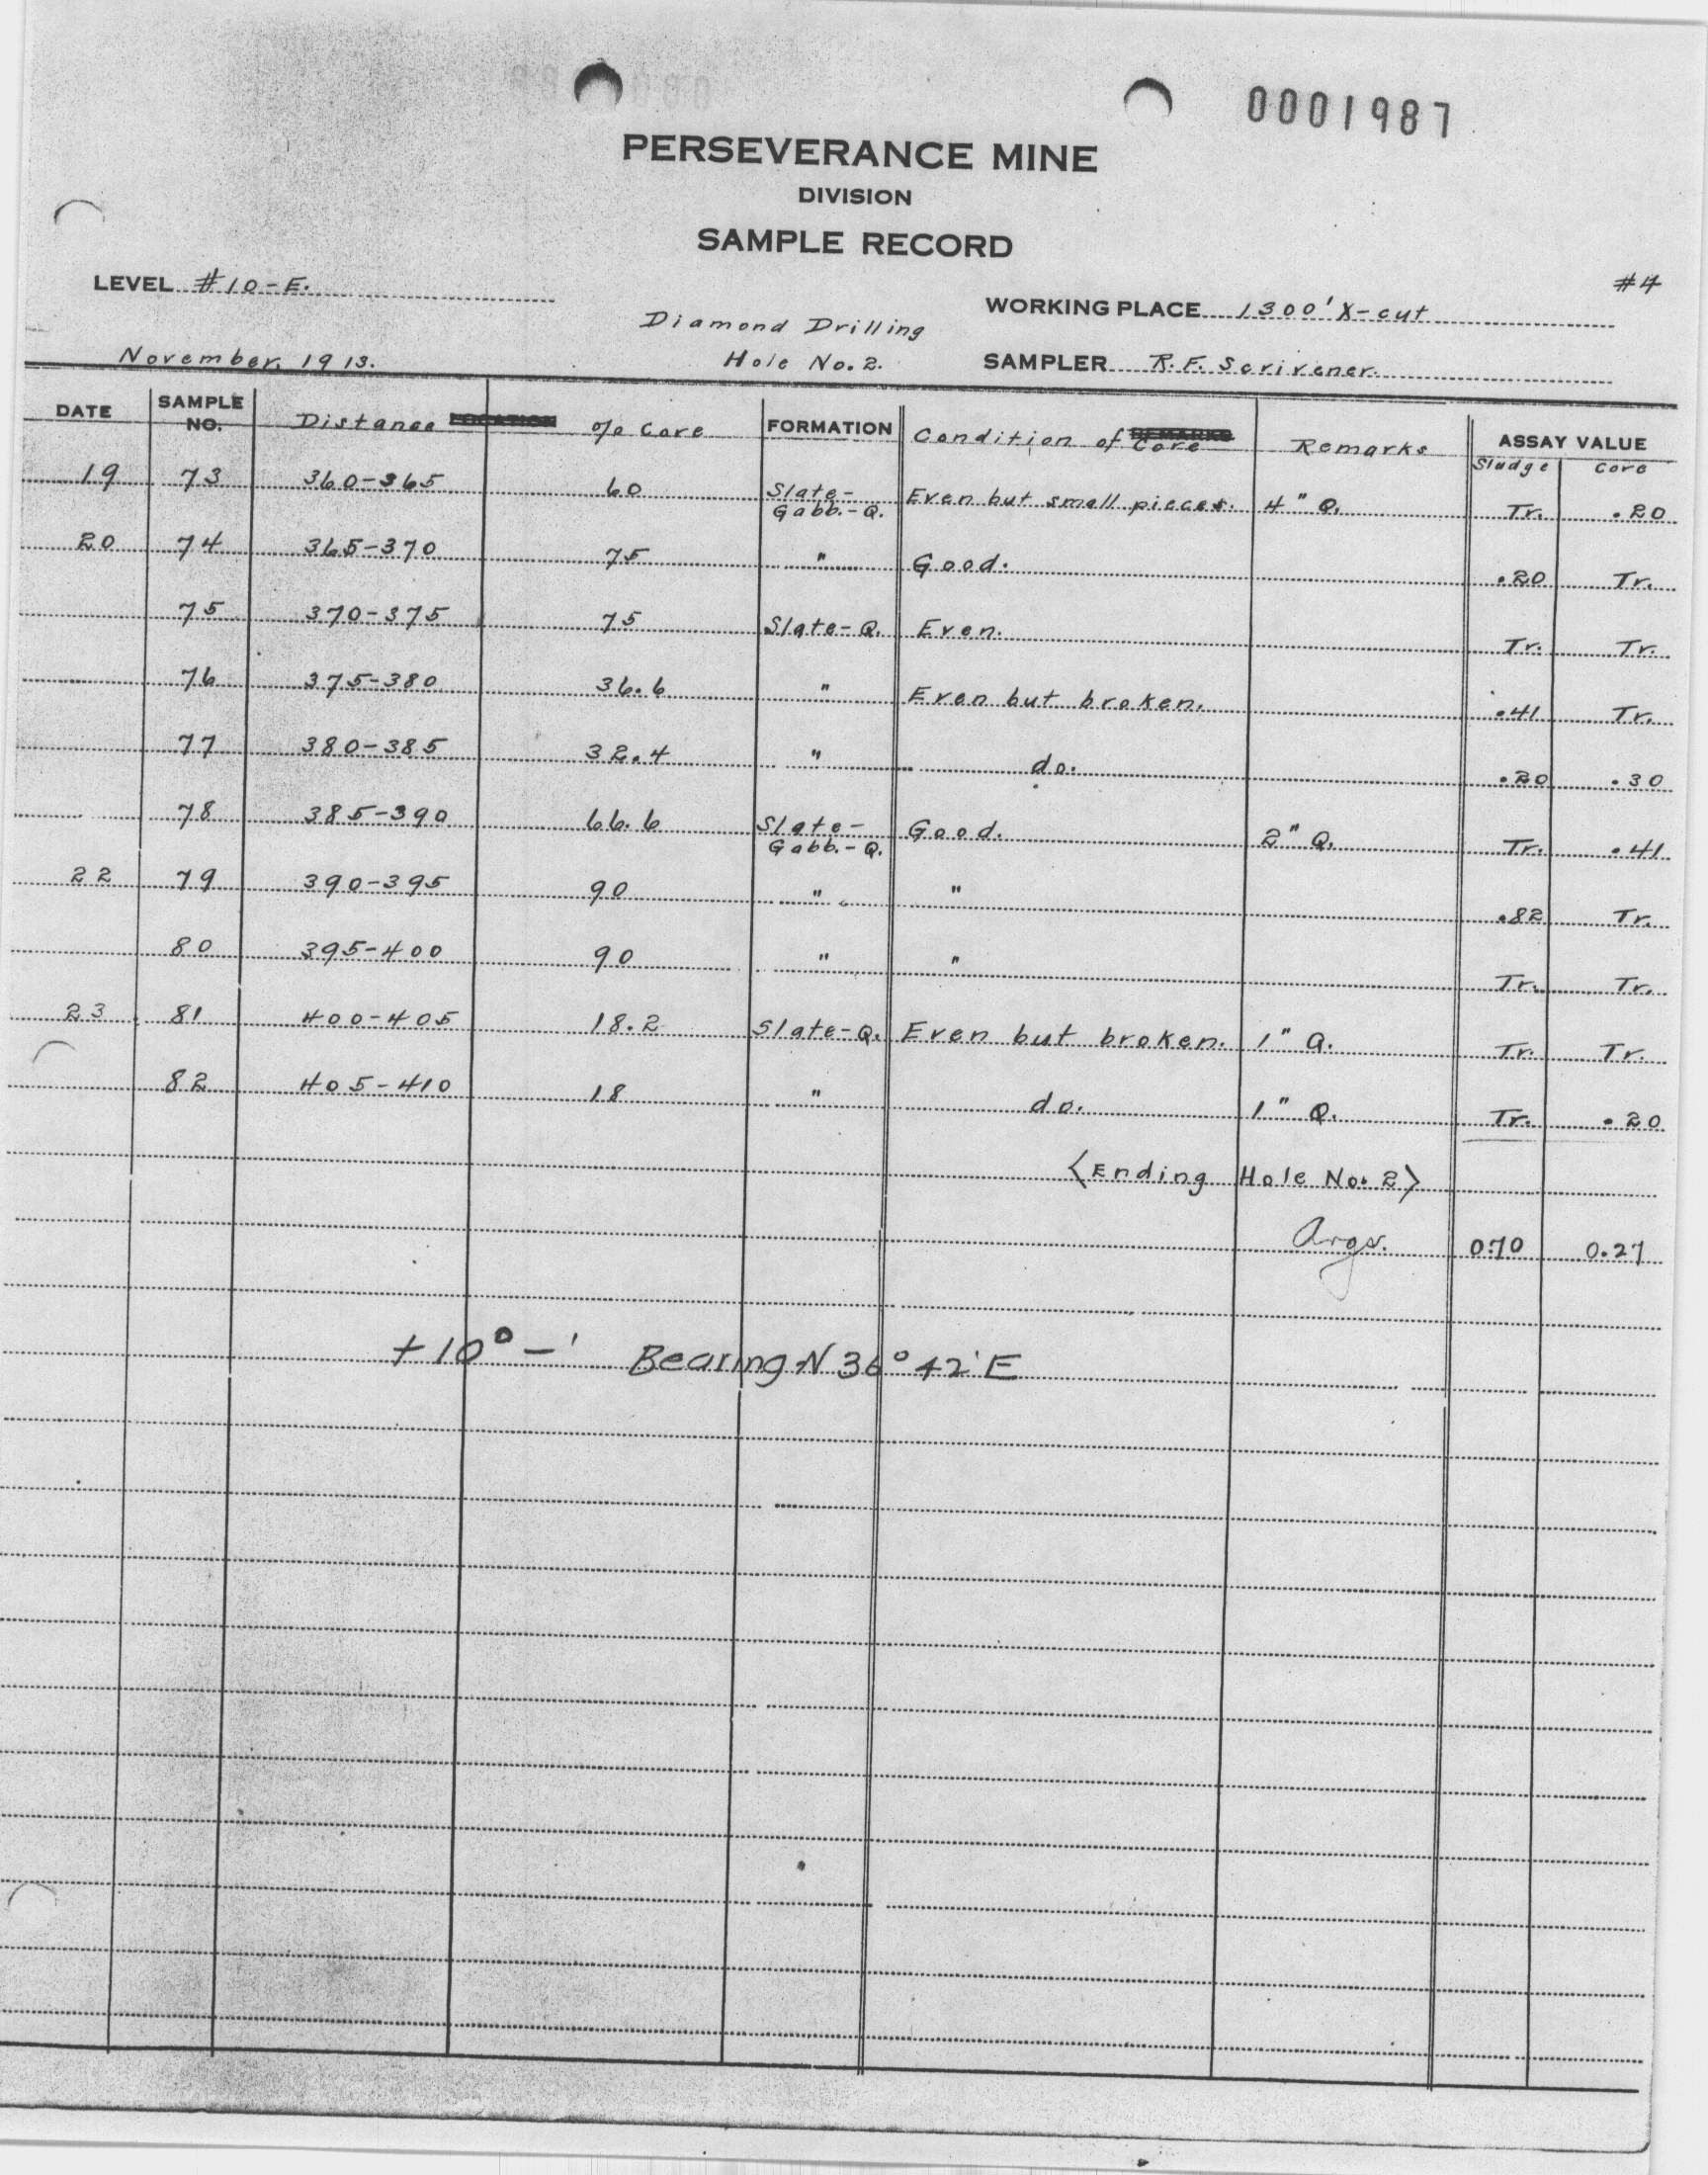 0001987
PERSEVERANCE MINE
DIVISION
SAMPLE RECORD
#4
LEVEL #10-E.
WORKING PLACE 1300' X-cut
Diamond Drilling
November, 1913.
Hole No. 2.
SAMPLER R. F. Scrivener.
DATE SAMPLE NO. Distance % Core FORMATION Condition of Core Remarks ASSAY VALUE
Sludge Core
19 73 360-365 60 Slate- Gabb.-Q. Even but small pieces. 4" Q. Tr. .20
20 74 365-370 75 " Good. .20 Tr.
75 370-375 75 Slate-Q. Even. Tr. Tr.
76 375-380 36.6 " Even but broken. .41 Tr.
77 380-385 32.4 " do. .20 .30
78 385-390 66.6 Slate- Gabb.-Q. Good. 2" Q. Tr. .41
22 79 390-395 90 " " .82 Tr.
80 395-400 90 " " Tr. Tr.
23 81 400-405 18.2 Slate-Q. Even but broken. 1" Q. Tr. Tr.
82 405-410 18 " do. 1" Q. Tr. .20
<Ending Hole No. 2>
Avgs. 0.70 0.27
+10° -' Bearing N 36° 42' E